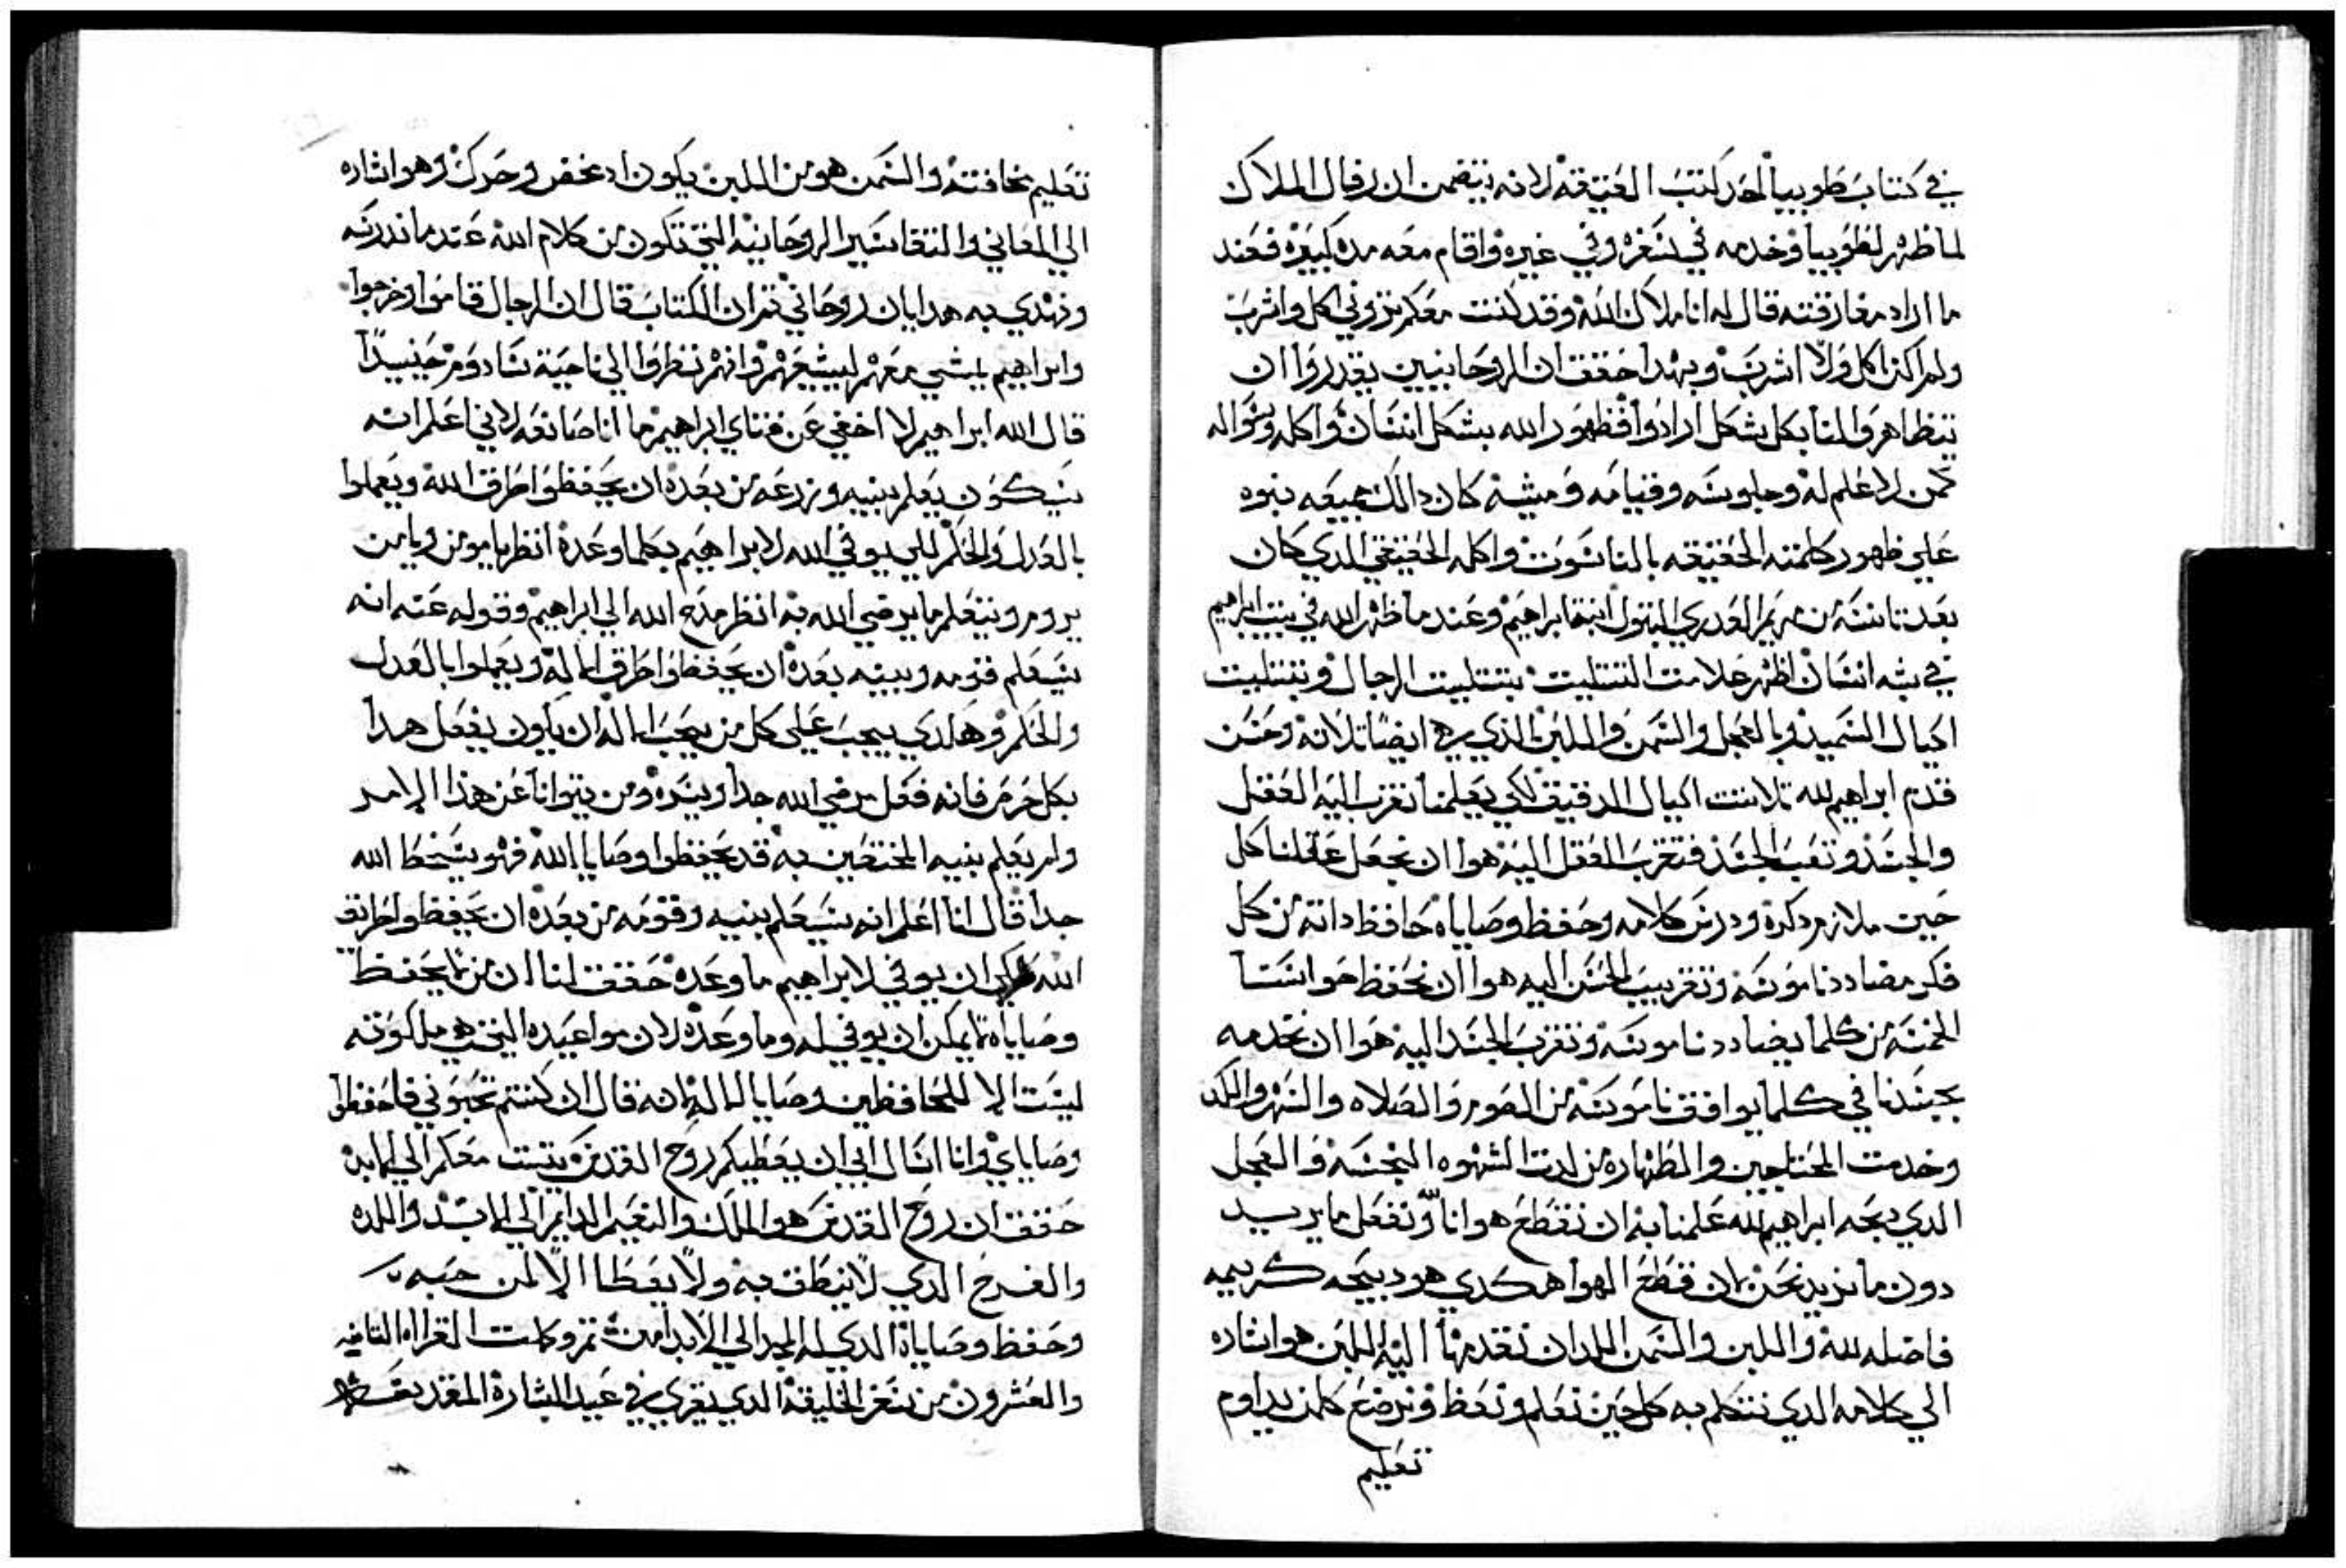 في كتاب طوبيا احد كتب العتيقه لانه يتضمن ان رفال الملاك
لما ظهر لطوبيا وخدمه في سفره وفي غيره واقام معه مده كبيره فعند
ما اراد مفارقته قال له انا ملاك الله وقد كنت معكم تروني اكل واشرب
ولم اكن اكل ولا اشرب وبهدا حقق ان الروحانيين يقدروا ان
يتظاهروا لنا بكل شكل ارادوا فظهور الله بشكل انسان واكله وسواله
كمن لا علم له وجلوسه وقيامه ومشيه كان دالك جميعه نبوه
علي ظهور كلمته الحقيقه بالناسوت واكله الحقيقي الدي كان
بعد تانسه من مريم العدري البتول ابنة ابراهيم وعند ما ظهر الله في بيت ابراهيم
في شبه انسان اظهر علامت التتليت بتتليت الرجال وبتتليت
اكيال السميد وبالعجل والسمن واللبن الذي هم ايضا تلاته وحسن
قدم ابراهيم لله تلاتت اكيال الدقيق لكي يعلمنا نقرب اليه العقل
والجسد وتعب الجسد فتقرب العقل اليه هوا ان نجعل عقلنا كل
حين ملازم دكره ودرس كلامه وحفظ وصاياه حافظ داته من كل
فكر مضادد ناموسه وتقريب الحس اليه هوا ان نحفظ حواسنا
الخمسه من كلما يضادد ناموسه وتقرب الجسد اليه هوا ان نخدمه
بجسدنا في كلما يوافق ناموسه من الصوم والصلاه والسهر والكد
وخدمت المحتاجين والطهاره من لدت الشهوه النجسه والعجل
الدي دبحه ابراهيم لله علمنا به ان نقطع هوانا ونفعل ما يريد
دون ما نريد نحن لان قطع الهوا هكدي هو دبيحه كريمه
فاضله لله واللبن والسمن اللدان نقدمها اليه اللبن هو اشاره
الي كلامه الدي نتكلم به كل حين نعلم ونعظ ونرضع كلمن يداوم
تعليم
تعليم مخافته والسمن هو من اللبن يكون اد مخض وحرك وهو اشاره
الي المعاني والتفاسير الروحانيه التي تكون من كلام الله عند ما ندرسه
ونهدي به هدايان روحاني تم ان الكتاب قال ان الرجال قاموا وخرجوا
وابراهيم يمشي معهم ليشيعهم وانهم نظروا الي ناحية سادوم حينيدا
قال الله ابراهيم لا اخفي عن فتاي ابراهيم ما انا صانعه لاني اعلم انه
سيكون يعلم بنيه وزرعه من بعده ان يحفظوا طرق الله ويعملوا
بالعدل والحكم لكي يوفي الله لابراهيم بكلما وعده انظر يا مومن ويا من
يروم ويتعلم ما يرضي الله به انظر مدح الله الي ابراهيم وقوله عنه انه
سيعلم قومه وبنيه بعده ان يحفظوا طرق الاله ويعملوا بالعدل
والحكم وهالدي يجب علي كل من يحب الاله ان يكون يفعل هدا
بكل حرص فانه فعل يرضي الله جدا ويسره ومن يتوانا عن هذا الامر
ولم يعلم بنيه المختصين به قد يحفظوا وصايا الله فهو يسخط الله
جدا قال انا اعلم انه سيعلم بنيه وقومه من بعده ان يحفظوا طرايق
الله لكي ان يوفي لابراهيم ما وعده حقق لنا ان من لا يحفظ
وصاياه لا يمكن ان يوفي له وما وعده لان مواعيده التي هي ملكوته
ليست الا للحافظين وصايا الاله لانه قال ان كنتم تحبوني فاحفظوا
وصاياي وانا اسال ابي ان يعطيكم روح القدس يتبت معكم الي الابد
حقق ان روح القدس هو الملك والنعيم الدايم الي الابد واللده
والفرح الدي لا ينطق به ولا يعطا الا لمن حبه
وحفظ وصاياه الدي له المجد الي الابد امين تم وكملت القراه التانيه
والعشرون من سفر الخليقه الدي تقري في عيد البشارة المقدسه